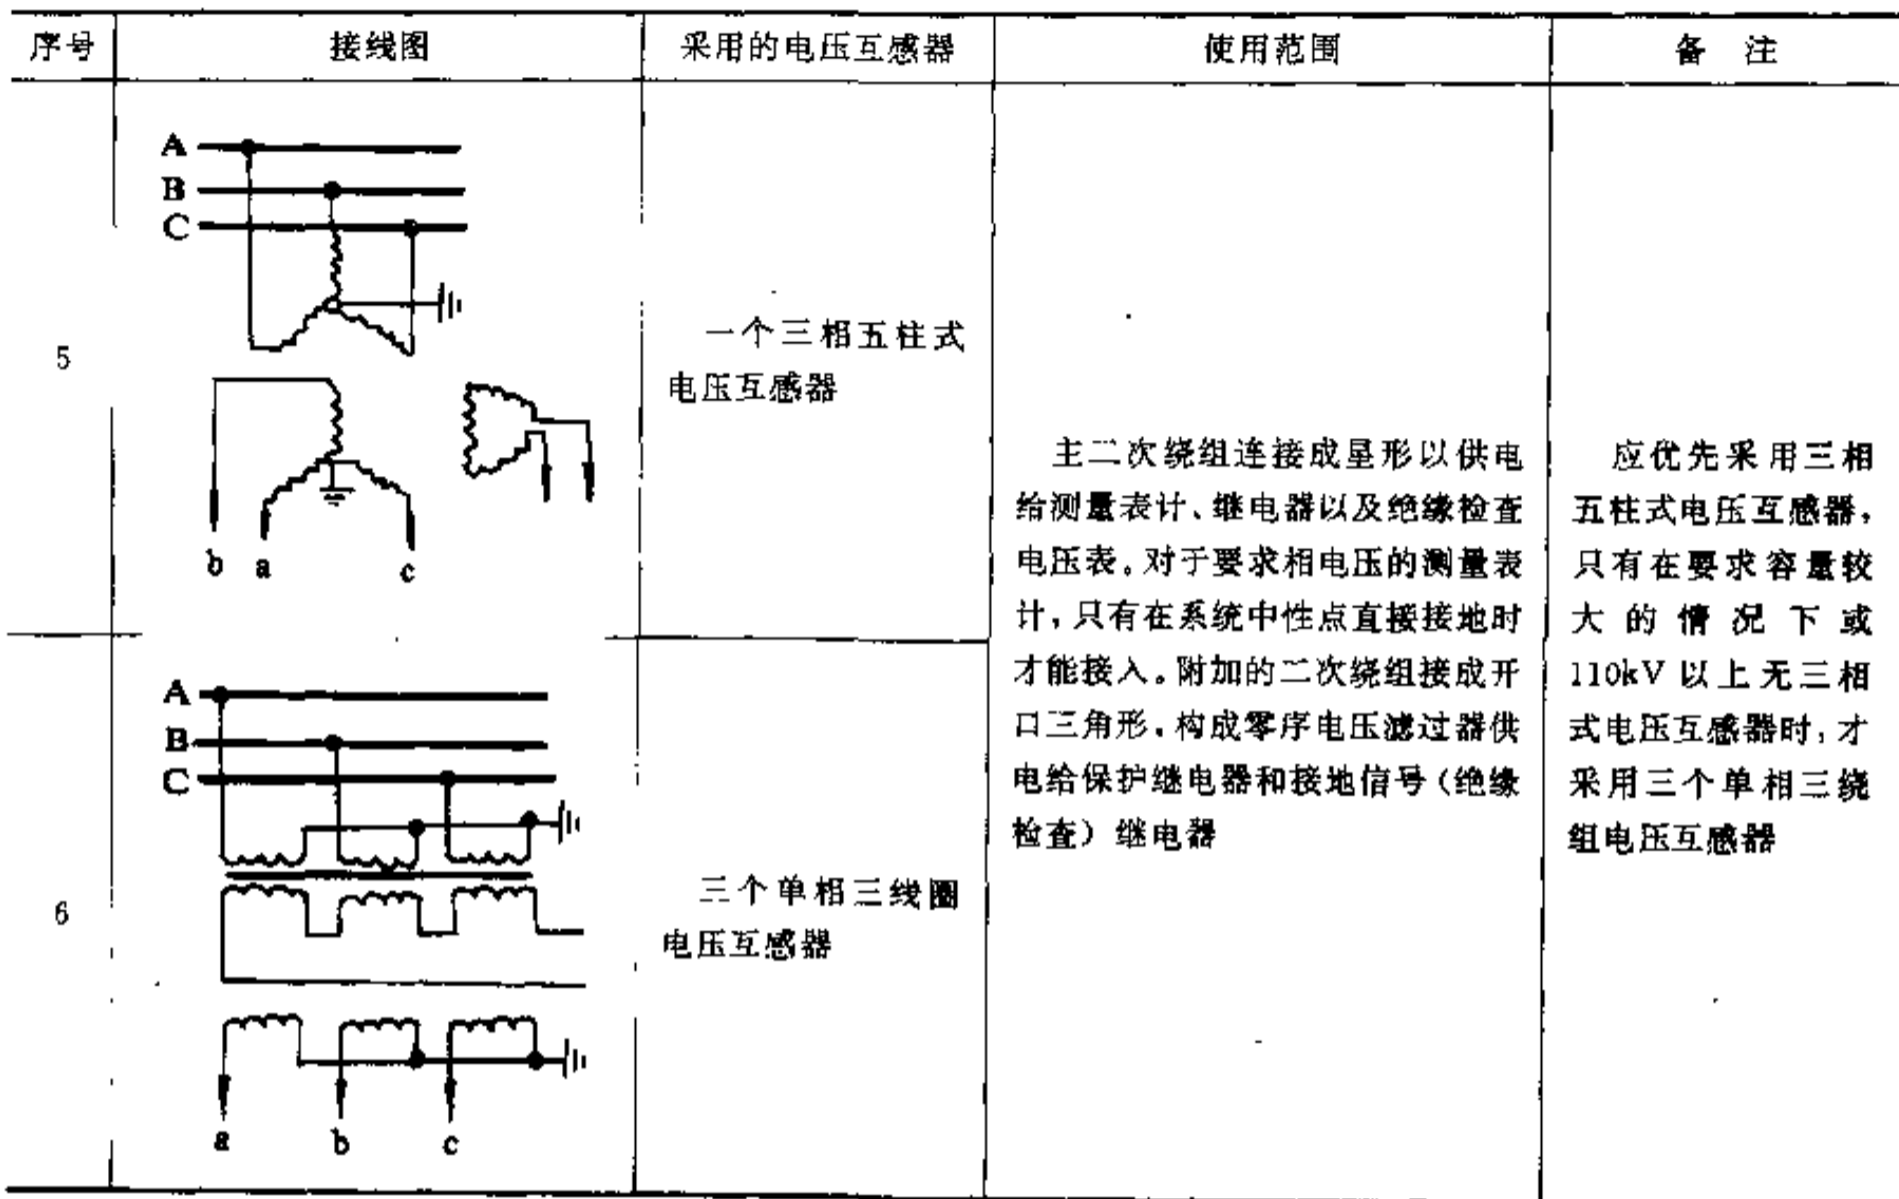 序号 接线图 采用的电压互感器 使用范围 备 注
5
A
B
C
b a c
一个三相五柱式
电压互感器
6
A
B
C
a b c
三个单相三线圈
电压互感器
主二次绕组连接成星形以供电
给测量表计、继电器以及绝缘检查
电压表。对于要求相电压的测量表
计,只有在系统中性点直接接地时
才能接入。附加的二次绕组接成开
口三角形,构成零序电压滤过器供
电给保护继电器和接地信号(绝缘
检查)继电器
应优先采用三相
五柱式电压互感器,
只有在要求容量较
大的情况下或
110kV 以上无三相
式电压互感器时,才
采用三个单相三绕
组电压互感器